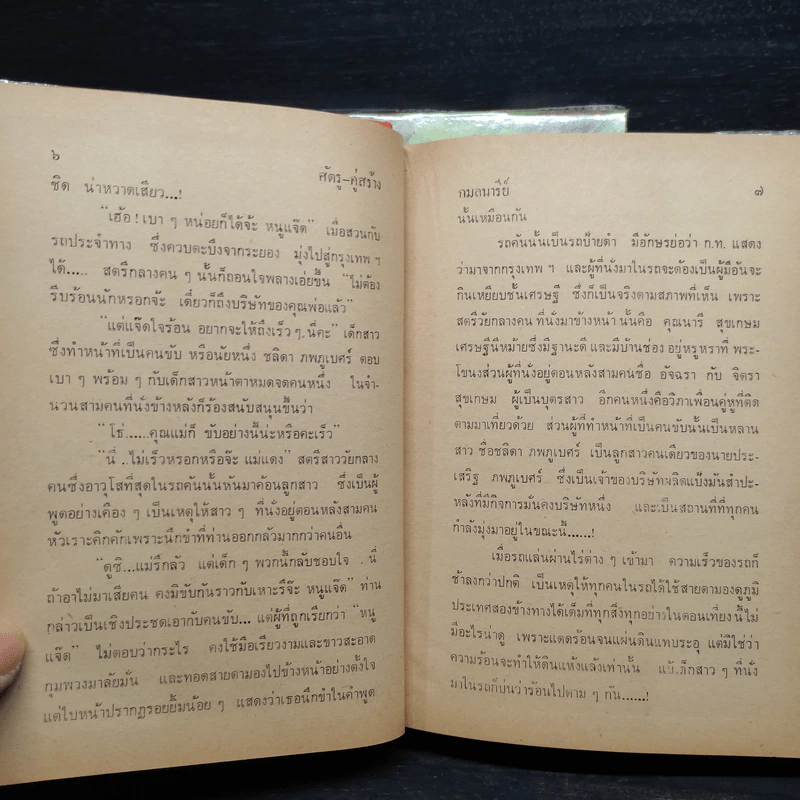 ๖
ศัตรู-คู่สร้าง
ชิด น่าหวาดเสียว...!
"เฮ้อ! เบา ๆ หน่อยก็ได้จ้ะ หนูแจ๊ด" เมื่อสวนกับ
รถประจำทาง ซึ่งควบตะบึงจากระยอง มุ่งไปสู่กรุงเทพ ฯ
ได้..... สตรีกลางคน ๆ นั้นก็ถอนใจพลางเอ่ยขึ้น "ไม่ต้อง
รีบร้อนนักหรอกจ้ะ เดี๋ยวก็ถึงบริษัทของคุณพ่อแล้ว"
"แต่แจ๊ดใจร้อน อยากจะให้ถึงเร็ว ๆ นี่คะ" เด็กสาว
ซึ่งทำหน้าที่เป็นคนขับ หรือนัยหนึ่ง ชลิดา ภพภูเบศร์ ตอบ
เบา ๆ พร้อม ๆ กับเด็กสาวหน้าตาหมดจดคนหนึ่ง ในจำ-
นวนสามคนที่นั่งข้างหลังก็ร้องสนับสนุนขึ้นว่า
"โธ่......คุณแม่ก็ ขับอย่างนี้น่ะหรือคะเร็ว"
"นี่ ..ไม่เร็วหรอกหรือจ๊ะ แม่แดง" สตรีสาววัยกลาง
คนซึ่งอาวุโสที่สุดในรถคันนั้นหันมาค้อนลูกสาว ซึ่งเป็นผู้
พูดอย่างเคือง ๆ เป็นเหตุให้สาว ๆ ที่นั่งอยู่ตอนหลังสามคน
หัวเราะคิกคักเพราะนึกขำที่ท่านออกกลัวมากกว่าคนอื่น
"ดูซิ...แม่รึกลัว แต่เด็ก ๆ พวกนี้กลับชอบใจ . นี่
ถ้าอาไม่มาเสียคน คงมิขับกันราวกับเหาะรึจ๊ะ หนูแจ๊ด" ท่าน
กล่าวเป็นเชิงประชดเอากับคนขับ... แต่ผู้ที่ถูกเรียกว่า "หนู
แจ๊ด" ไม่ตอบว่ากระไร คงใช้มือเรียวงามและขาวสะอาด
กุมพวงมาลัยมั่น และทอดสายตามองไปข้างหน้าอย่างตั้งใจ
แต่ใบหน้าปรากฏรอยยิ้มน้อย ๆ แสดงว่าเธอนึกขำในคำพูด
กมลนารีย์
๗
นั้นเหมือนกัน
รถคันนั้นเป็นรถป้ายดำ มีอักษรย่อว่า ก.ท. แสดง
ว่ามาจากกรุงเทพ ฯ และผู้ที่นั่งมาในรถจะต้องเป็นผู้มีอันจะ
กินเหยียบชั้นเศรษฐี ซึ่งก็เป็นจริงตามสภาพที่เห็น เพราะ
สตรีวัยกลางคน ที่นั่งมาข้างหน้า นั้นคือ คุณนารี สุขเกษม
เศรษฐีนีหม้ายซึ่งมีฐานะดี และมีบ้านช่อง อยู่หรูหราที่ พระ-
โขนงส่วนผู้ที่นั่งอยู่ตอนหลังสามคนชื่อ อัจฉรา กับ จิตรา
สุขเกษม ผู้เป็นบุตรสาว อีกคนหนึ่งคือวิภาเพื่อนคู่หูที่ติด
ตามมาเที่ยวด้วย ส่วนผู้ที่ทำหน้าที่เป็นคนขับนั้นเป็นหลาน
สาว ชื่อชลิดา ภพภูเบศร์ เป็นลูกสาวคนเดียวของนายประ-
เสริฐ ภพภูเบศร์ ซึ่งเป็นเจ้าของบริษัทผลิตแป้งมันสำปะ-
หลังที่มีกิจการมั่นคงบริษัทหนึ่ง และเป็นสถานที่ที่ทุกคน
กำลังมุ่งมาอยู่ในขณะนี้......!
เมื่อรถแล่นผ่านไร่ต่าง ๆ เข้ามา ความเร็วของรถก็
ช้าลงกว่าปกติ เป็นเหตุให้ทุกคนในรถได้ใช้สายตามองดูภูมิ
ประเทศสองข้างทางได้เต็มที่ทุกสิ่งทุกอย่างในตอนเที่ยงนี้ไม่
มีอะไรน่าดู เพราะแดดร้อนจนแผ่นดินแทบระอุ แต่มิใช่ว่า
ความร้อนจะทำให้ดินแห้งแล้งเท่านั้น แม้เด็กสาว ๆ ที่นั่ง
มาในรถก็บ่นว่าร้อนไปตาม ๆ กัน......!